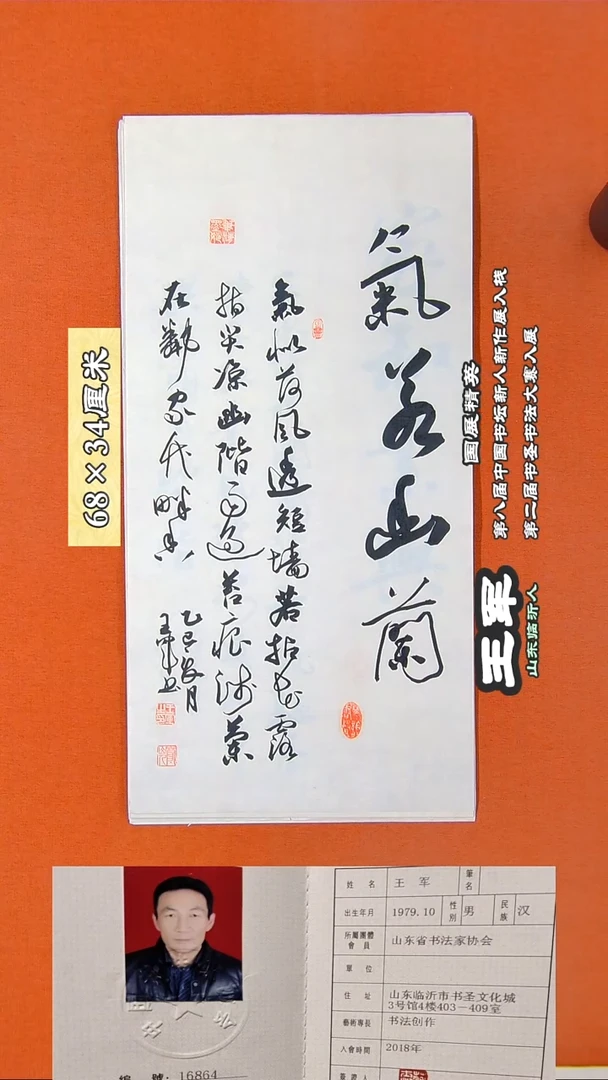 氣若幽蘭
氣似荷風透短墙若拈花露
指尖凉幽階雨過苔痕淺
在鄰家畔香
乙巳月
王军书
68×34厘米
国展精英
第八届中国书坛新人新作展入栈
第二届书圣书法大赛入展
王军
山东临沂人
姓 名 王 军 筆名
出生年月 1979.10 性别 男 民族 汉
所屬團體會員 山东省书法家协会
單 位
住 址 山东临沂市书圣文化城
3号馆4楼403—409室
藝術專長 书法创作
入會時間 2018年
簽證人
編 號：16864